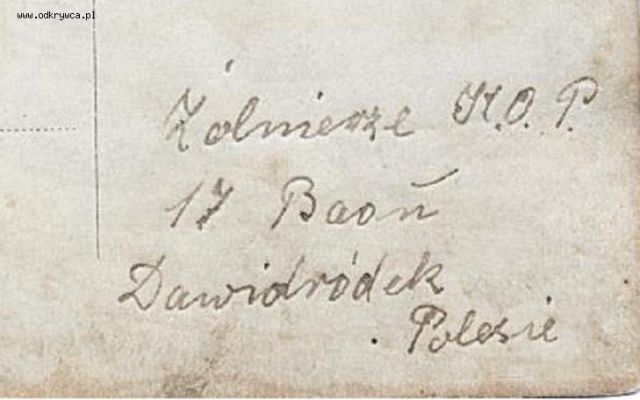 www.odkrywca.pl
Żolnierze K.O.P.
17 Baoń
Dawidródek
Polesie